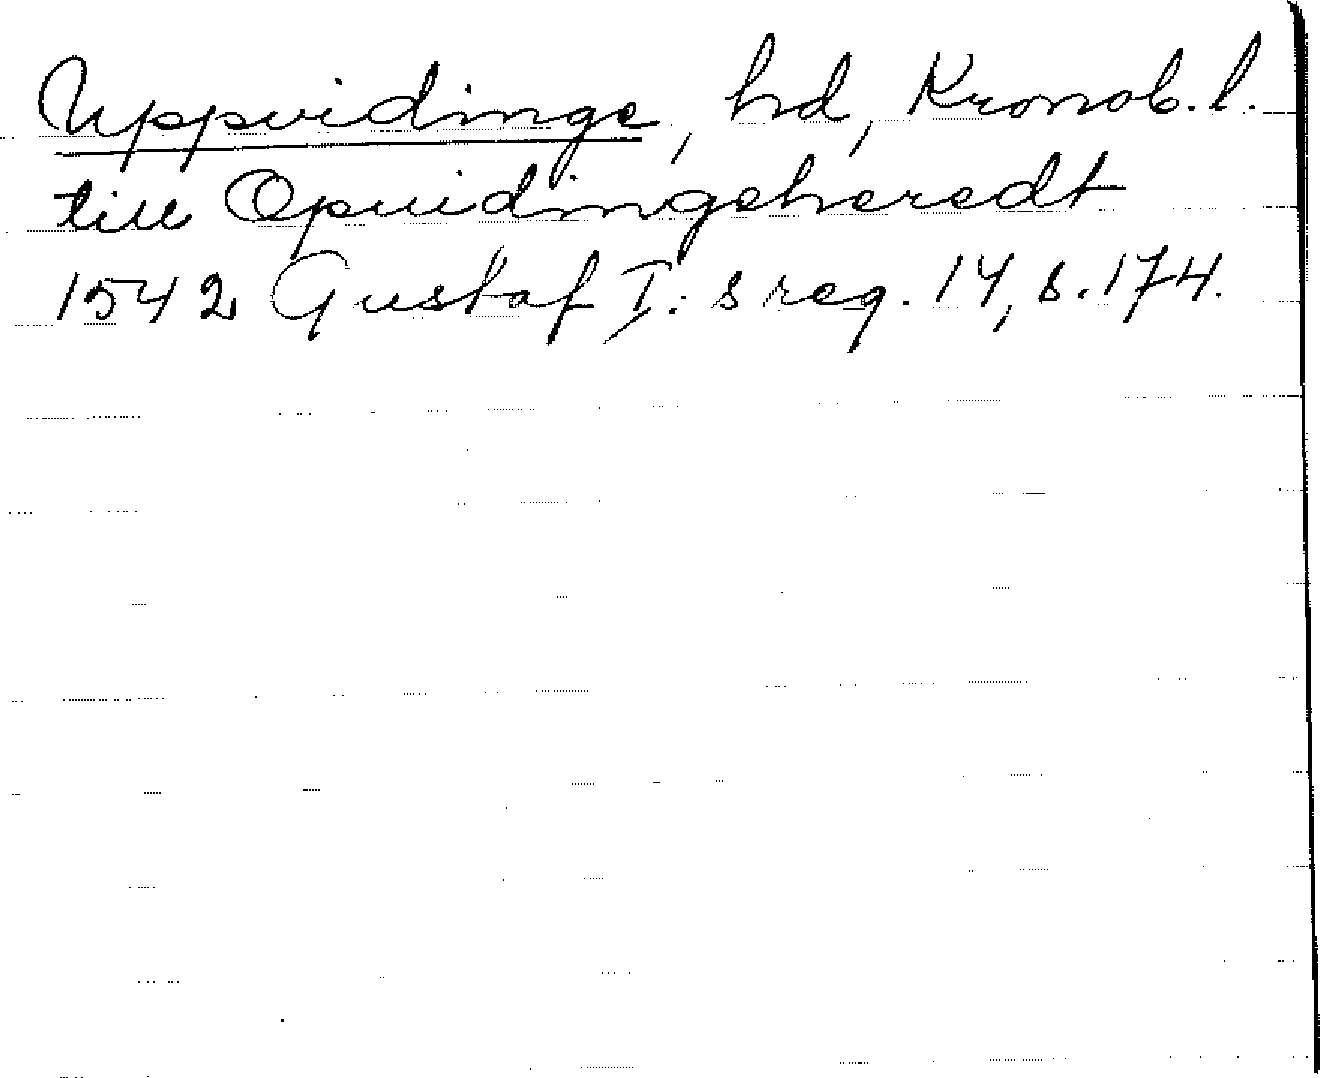 Uppvidinge, hd, Kronob. l.
till Opuidingeheredt
1542 Gustaf I: s reg. 14, s. 174.